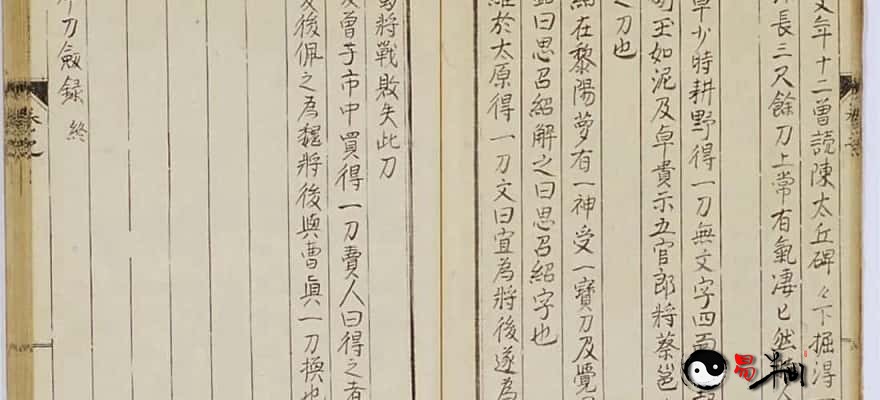 年十二曾讀陳太丘碑々下掘得
長三尺餘刀上常有氣凄匕然
卓少時耕野得一刀無文字四面
玉如泥及卓貴示五官郎將蔡邕
之刀也
紹在黎陽夢有一神受一寶刀及覺
銘曰思召紹解之曰思召紹字也
維於太原得一刀文曰宜為將後遂為
蜀將戰敗失此刀
曾于市中買得一刀賣人曰得之者
及後佩之為魏將後與曹眞一刀換也
刀劔録 終
易